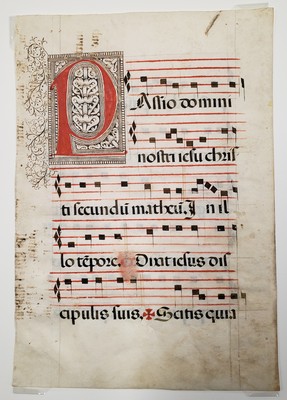 Passio domini
nostri iesu chris
ti secundū matheū. In il
lo tēpore. Dixit iesus dis
cipulis suis. ✠ Scitis quia